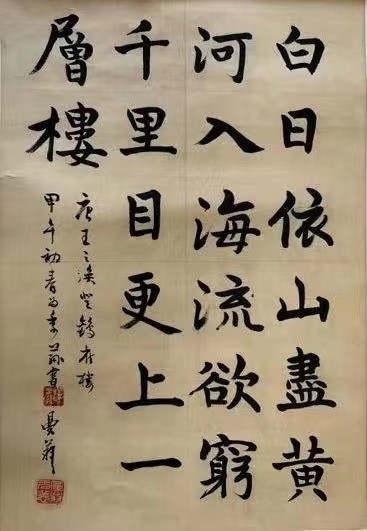 白日依山盡黄
河入海流欲窮
千里目更上一
層樓
唐王之渙登鸛雀樓
甲午初春書